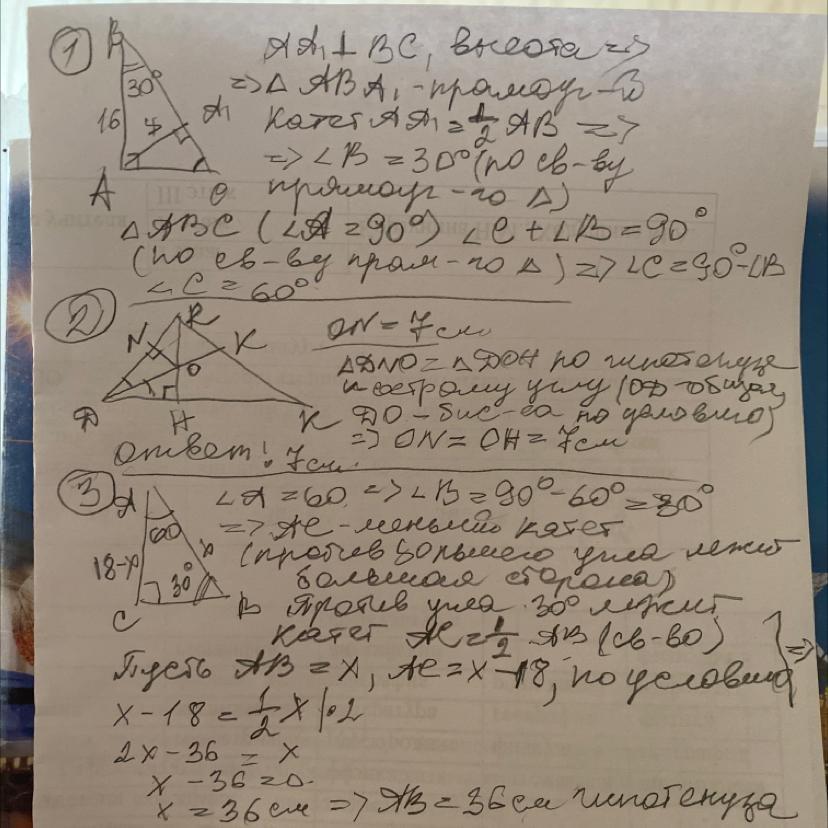 1
B
30°
16
4
A₁
A
C
AA₁ ⊥ BC, высота =>
=> △ABA₁ - прямоуг-й
Катет AA₁ = 1/2 AB =>
=> ∠B = 30° (по св-ву
прямоуг-го △)
△ABC (∠A = 90°) ∠C + ∠B = 90°
(по св-ву прям-го △) => ∠C = 90° - ∠B
∠C = 60°
2
R
N
K
O
D
H
K
ON = 7 см
△DNO = △DOH по гипотенузе
и острому углу (OD - общая,
DO - бис-са по условию)
=> ON = OH = 7 см
Ответ: 7 см.
3
A
60
18-x
x
30°
C
B
∠A = 60 => ∠B = 90° - 60° = 30°
=> AC - меньший катет
(против большего угла лежит
большая сторона)
Против угла 30° лежит
катет AC = 1/2 AB (св-во)
Пусть AB = x, AC = x - 18, по условию
=>
x - 18 = 1/2 x |·2
2x - 36 = x
x - 36 = 0
x = 36 см => AB = 36 см гипотенуза